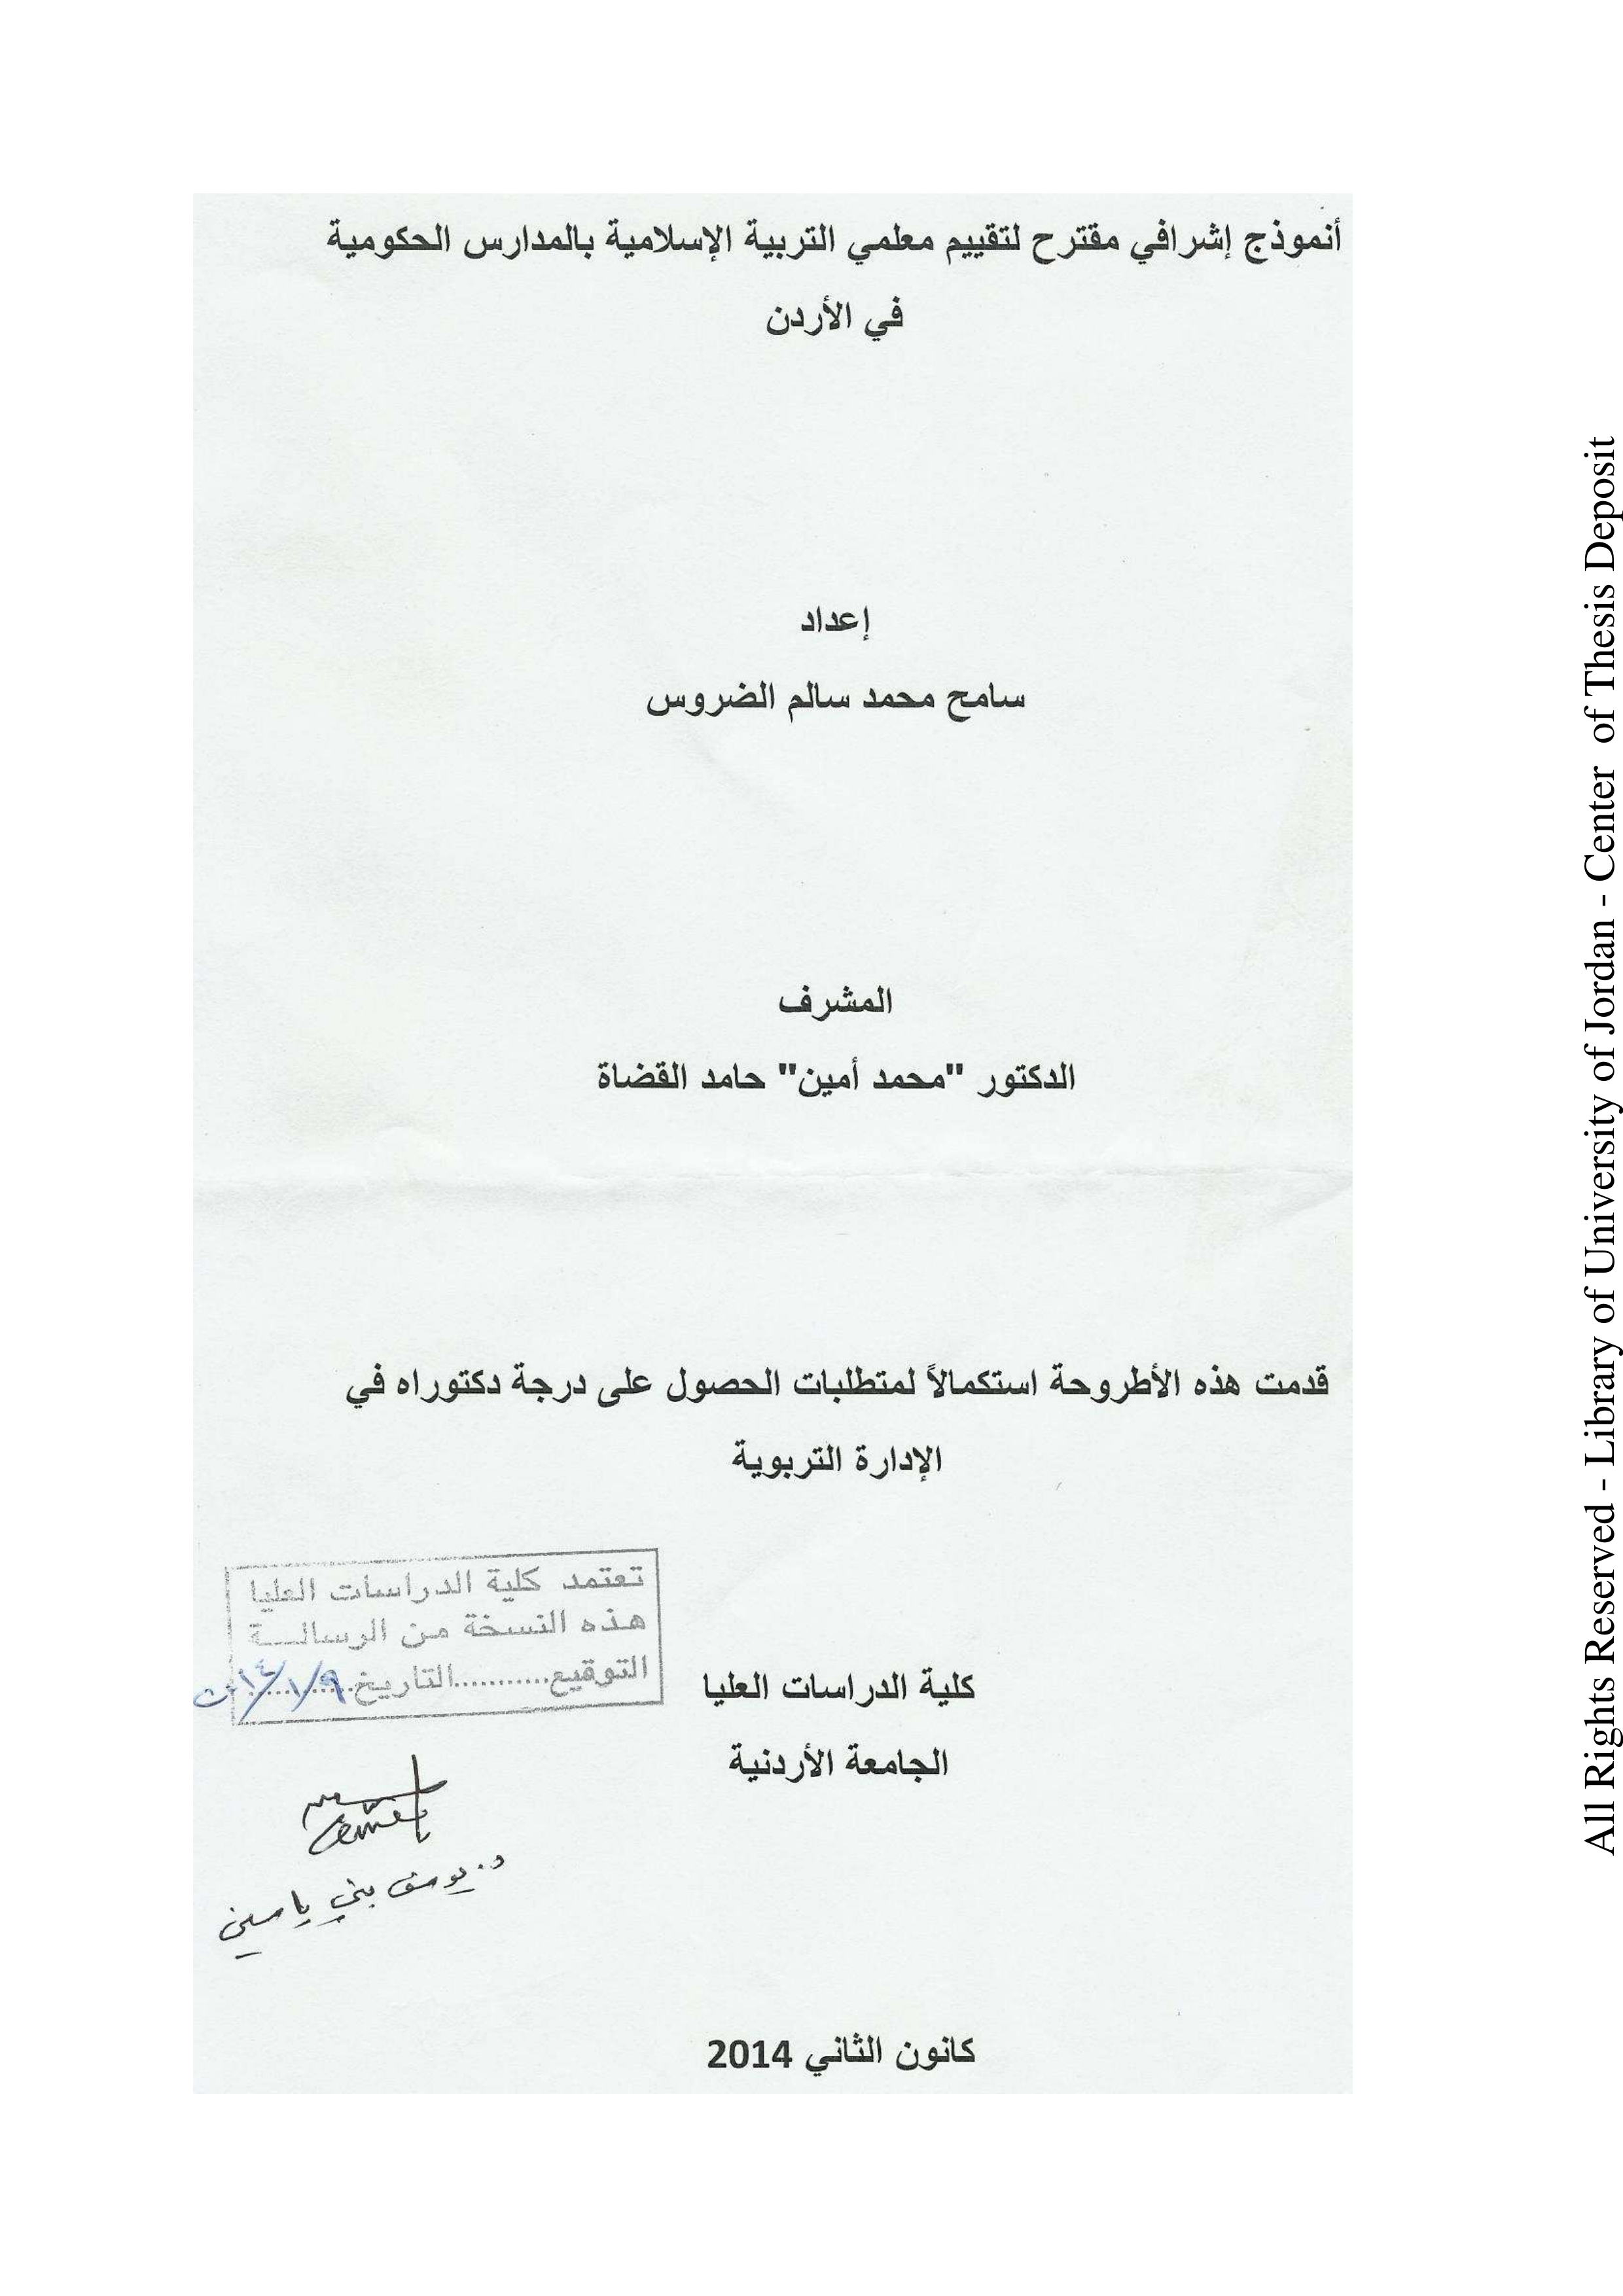 أنموذج إشرافي مقترح لتقييم معلمي التربية الإسلامية بالمدارس الحكومية
في الأردن
إعداد
سامح محمد سالم الضروس
المشرف
الدكتور "محمد أمين" حامد القضاة
قدمت هذه الأطروحة استكمالاً لمتطلبات الحصول على درجة دكتوراه في
الإدارة التربوية
تعتمد كلية الدراسات العليا
هذه النسخة من الرسالة
التوقيع...........التاريخ............
كلية الدراسات العليا
الجامعة الأردنية
د. يوسف بني ياسين
كانون الثاني 2014
All Rights Reserved - Library of University of Jordan - Center of Thesis Deposit